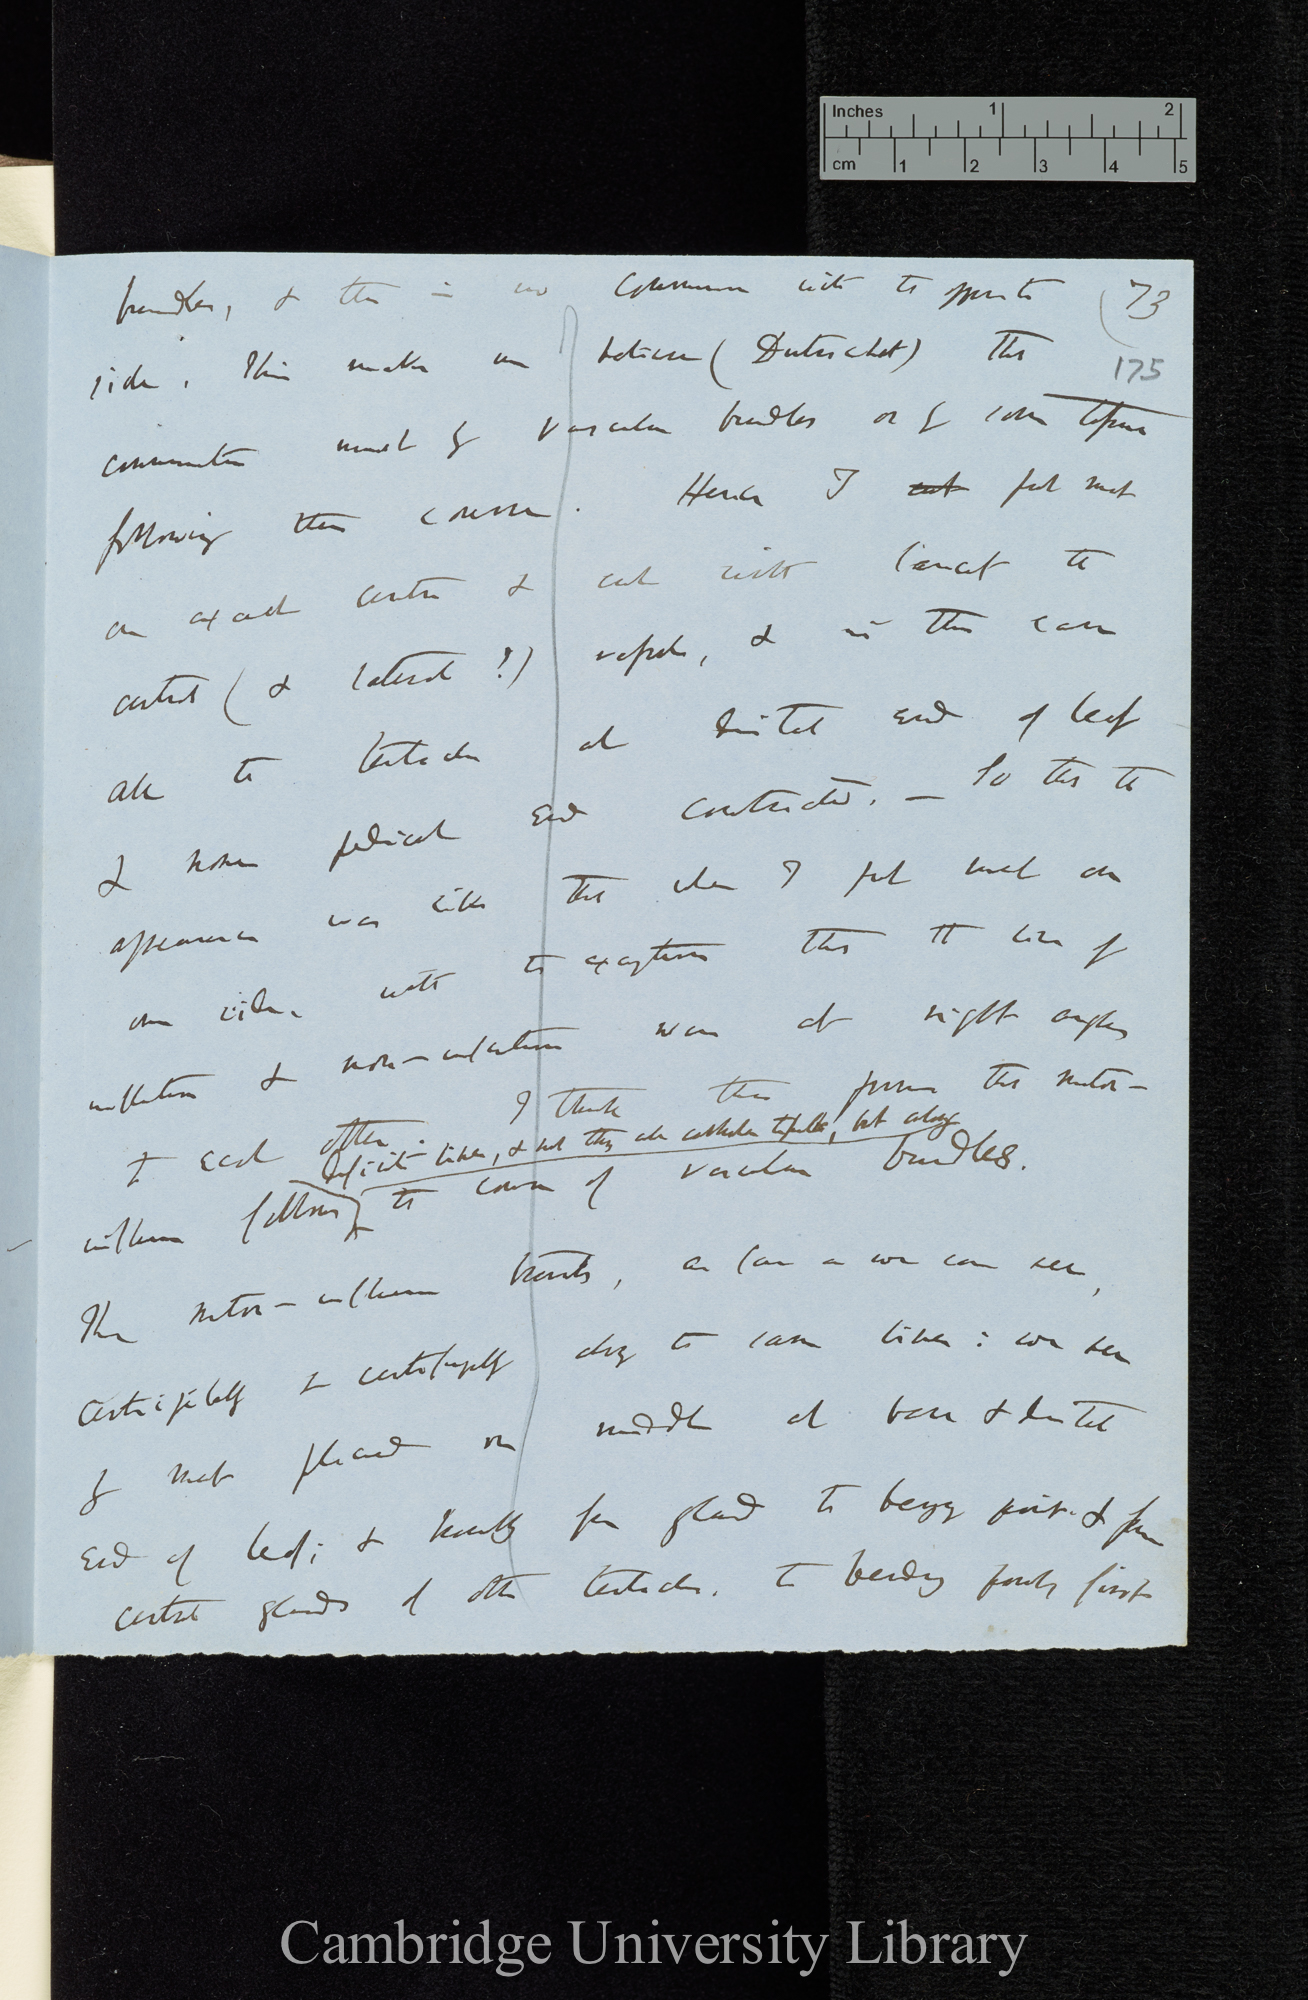 Inches 1 2
cm 1 2 3 4 5
bundles, & there is no communn with the opposite (73
side. This makes me believe (Dutrochet) the 175
communication must be vascular bundles or of some tissue
following their course. Hence I cut put meat
on exact centre & cut with lancet the
central (& lateral?) vessels, & in this case
all the tentacles at distal end of leaf
& none pedicel end contracted. — So that the
appearance was like that when I put meat on
one side, with the exception that the line of
inflection & non-inflection was at right angles
to each other. I think this proves that motor-
definite lines, & not they all cellular tissue, but along
influence follows the course of vascular bundles.
The motor-influence travels, as far as we can see,
centripetally & centrifugally along the same lines: we see
if meat placed on middle at base & distal
end of leaf; & locally from gland to bending point & from
central glands of other tentacles. the bending parts first
Cambridge University Library